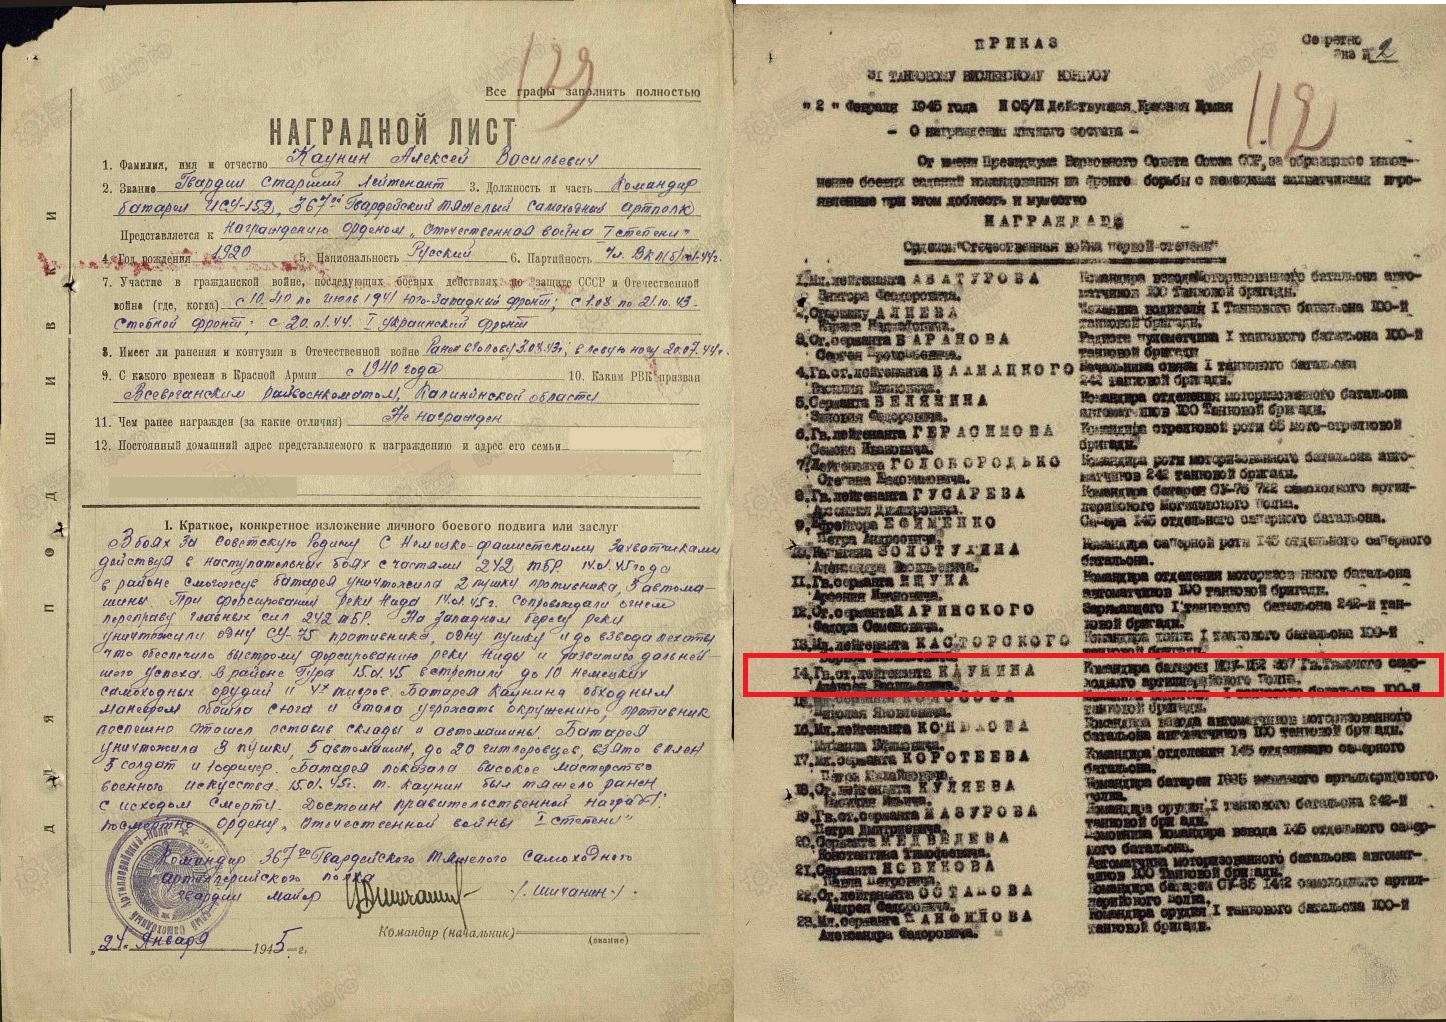 129
Все графы заполнять полностью
НАГРАДНОЙ ЛИСТ
1. Фамилия, имя и отчество Каунин Алексей Васильевич
2. Звание Гвардии старший лейтенант 3. Должность и часть Командир
батареи ИСУ-152, 367го Гвардейский тяжелый самоходный артполк
Представляется к награждению орденом „Отечественная война I степени"
4. Год рождения 1920 5. Национальность Русский 6. Партийность Чл. ВКП(б)
7. Участие в гражданской войне, последующих боевых действиях по защите СССР и Отечественной
войне (где, когда) с 10.40 по июль 1941 Юго-Западный фронт; с 1.08 по 21.10.43.
Степной фронт; с 20.01.44. I Украинский фронт
8. Имеет ли ранения и контузии в Отечественной войне Ранен в голову 3.08.43г., в левую ногу 20.07.44г.
9. С какого времени в Красной Армии с 1940 года 10. Каким РВК призван
райвоенкоматом, Калининской области
11. Чем ранее награжден (за какие отличия) Не награжден
12. Постоянный домашний адрес представляемого к награждению и адрес его семьи
ДЛЯ ПОДШИВКИ
I. Краткое, конкретное изложение личного боевого подвига или заслуг
В боях за советскую Родину с Немецко-фашистскими захватчиками
действуя в наступательных боях с частями 242 тбр. 14.01.45 года
в районе батарея уничтожила 2 пушки противника, 3 автома-
шины. При форсировании реки Нида 14.01.45г. сопровождали огнем
переправу главных сил 242 тбр. На западном берегу реки
уничтожили одну СУ-75 противника, одну пушку и до взвода пехоты
что обеспечило быстрому форсированию реки Ниды и развитию дальней-
шего успеха. В районе 15.01.45 встретили до 10 немецких
самоходных орудий и тигров. Батарея Каунина обходным
маневром обошла с юга и стала угрожать окружению, противник
поспешно отошел оставив склады и автомашины. Батарея
уничтожила 3 пушки, 5 автомашин, до 20 гитлеровцев, взято в плен
5 солдат и 1 офицер. Батарея показала высокое мастерство
военного искусства. 15.01.45г. т. Каунин был тяжело ранен
с исходом смерти. Достоин правительственной награды:
посмертно Ордену „Отечественной войны I степени"
Командир 367го Гвардейского тяжелого самоходного
артиллерийского полка
гвардии майор /Шичанин/
Командир (начальник)
(звание)
„24" Января 1945 г.
Секретно
Экз № 2
ПРИКАЗ
112
31 ТАНКОВОМУ ВИСЛЕНСКОМУ КОРПУСУ
"2" Февраля 1945 года № 05/Н Действующая Красная Армия
- О награждении личного состава -
От имени Президиума Верховного Совета Союза ССР, за образцовое выпол-
нение боевых заданий командования на фронте борьбы с немецкими захватчиками и про-
явленные при этом доблесть и мужество
НАГРАЖДАЮ:
Орденом "Отечественная война первой степени"
1. Мл.лейтенанта АБАТУРОВА Командира взвода моторизованного батальона авто-
Виктора Федоровича. матчиков 100 Танковой бригады.
2. Старшину АЛИЕВА Механика водителя I Танкового батальона 100-й
танковой бригады.
3. Ст.сержанта БАРАНОВА Радиста пулеметчика I танкового батальона 100-й
Сергея Прокофьевича. танковой бригады
4. Гв.ст.лейтенанта Начальника связи I танкового батальона
Василия Ивановича. 242 танковой бригады.
5. Сержанта БЕЛЯНИНА Командира отделения моторизованного батальона
Зиновия Федоровича. автоматчиков 100 Танковой бригады.
6. Гв.лейтенанта ГЕРАСИМОВА Командира стрелковой роты 65 мото-стрелковой
Семена Ивановича. бригады.
7. Лейтенанта ГОЛОБОРОДЬКО Командира роты моторизованного батальона авто-
Степана Евдокимовича. матчиков 242 танковой бригады.
8. Гв.лейтенанта ГУСАРЕВА Командира батареи СУ-76 722 самоходного артил-
Арсентия Дмитриевича. лерийского Полка.
9. Ефрейтора ЕФИМЕНКО Сапера 145 отдельного саперного батальона.
Петра Андреевича.
10. Капитана ЗОЛОТУХИНА Командира саперной роты 145 отдельного саперного
батальона.
11. Гв.сержанта ИЩУКА Командира отделения моторизованного батальона
Арсения Ивановича. автоматчиков 100 танковой бригады.
12. Ст.сержанта КАРИНСКОГО Заряжающего I танкового батальона 242-й тан-
Федора Семеновича. ковой бригады.
13. Мл.лейтенанта КАСТОРСКОГО Командира танка I танкового батальона 100-й
14. Гв.ст.лейтенанта КАУНИНА Командира батареи ИСУ-152 367 Гв.Тяжелого само-
Алексея Васильевича. ходного артиллерийского Полка.
I танкового батальона 100-й
Николая Яковлевича. танковой бригады.
16. Мл.лейтенанта Командира взвода автоматчиков моторизованного
батальона автоматчиков 100 танковой бригады.
17. Мл.сержанта КОРОТЕЕВА Командира отделения 145 отдельного саперного
Павла Михайловича. батальона.
18. Ст.лейтенанта КУЛЯЕВА Командира батареи артиллерийского
полка.
19. Гв.ст.сержанта МАЗУРОВА Командира орудия I танкового батальона 242-й
Петра Дмитриевича. танковой бригады.
20. Сержанта МЕДВЕДЕВА Помощника командира взвода 145 отдельного сапер-
Константина Тимофеевича. ного батальона.
21. Сержанта НОВИКОВА Автоматчика моторизованного батальона автомат-
Павла Петровича. чиков 100 Танковой бригады.
22. Ст.лейтенанта ОСТАПОВА Командира батареи СУ-85 1442 самоходного артил-
Андрея Федоровича. лерийского полка.
23. Мл.сержанта ПАНФИЛОВА Командира орудия I танкового батальона 100-й
Александра Федоровича. танковой бригады.